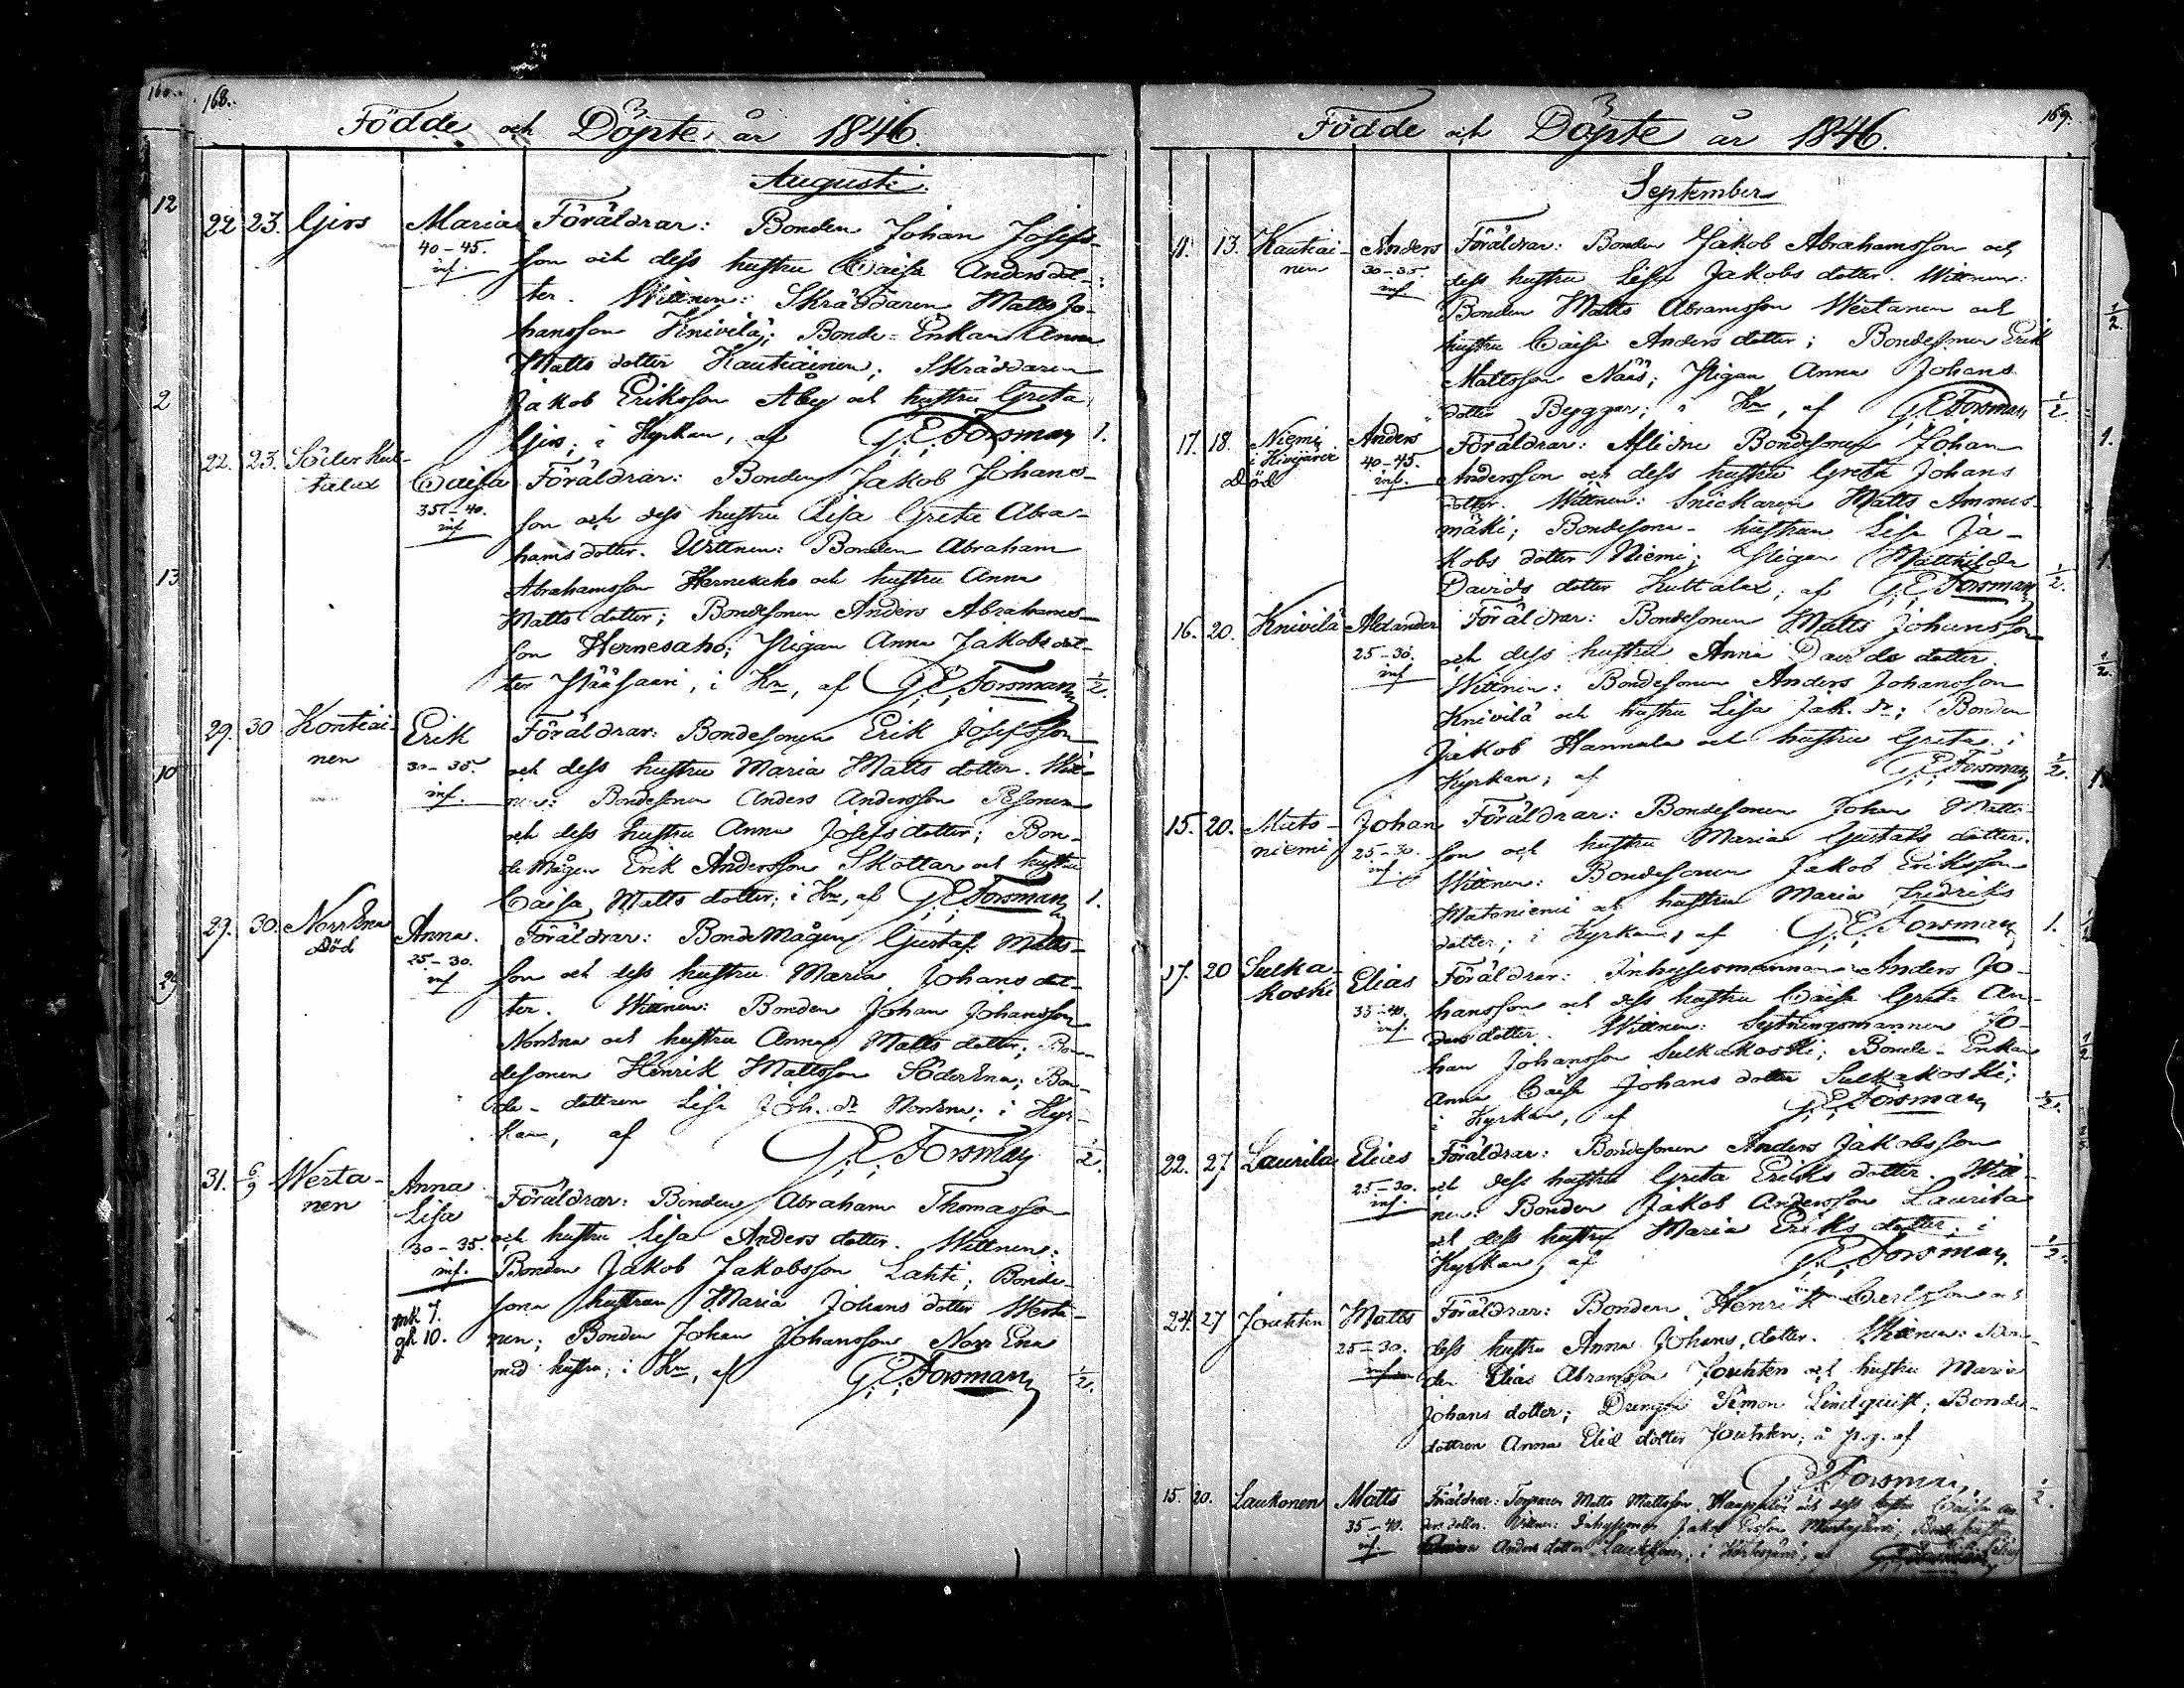 168.
Födde och Döpte år 1846.
Augusti.
22 23. Gers Maria Föräldrar: Bonden Johan Josefs-
40-45. son och dess hustru Caisa Andersdot-
inf. ter. Wittnen: Skräddaren Matts Jo-
hansson Knivilä; Bonde-Enkan Anna
Matts dotter Kautiainen; Skräddaren
Jakob Eriksson Åby och hustru Greta
Gers; i Kyrkan, af G.E. Forsman 1.
22. 23. Söder Kul-
talax Caisa Föräldrar: Bonden Jakob Johans-
35-40. son och dess hustru Lisa Greta Abra-
inf hams dotter. Wittnen: Bonden Abraham
Abrahamsson Hernesaho och hustru Anna
Matts dotter; Bondesonen Anders Abrahams-
son Hernesaho; Pigan Anna Jakobs dot-
ter Pääsaari, i Kn, af G.E. Forsman 1/2.
29. 30 Kontiai-
nen Erik Föräldrar: Bondesonen Erik Josefsson
30-35. och dess hustru Maria Matts dotter. Witt-
inf. nen: Bondesonen Anders Andersson Pesonen
och dess hustru Anna Josefs dotter; Bon-
de Mågen Erik Andersson Skottar och hustru
Caisa Matts dotter; i Kn, af G.E. Forsman 1.
29. 30. Norr Ena
Död Anna. Föräldrar: BondeMågen Gustaf Matts-
25-30. son och dess hustru Maria Johans dot-
inf ter. Wittnen: Bonden Johan Johansson
NorrEna och hustru Anna Matts dotter; Bon-
desonen Henrik Mattsson SöderEna; Bon-
de-dottren Lisa Joh. dr NorrEna; i Kyr-
kan, af G.E. Forsman 1/2.
31. 6/9 Werta-
nen Anna
Lisa Föräldrar: Bonden Abraham Thomasson
30-35. och hustru Lisa Anders dotter. Wittnen:
inf. Bonden Jakob Jakobsson Lahti; Bonde-
sons hustrun Maria Johans dotter Werta-
mk 7.
gk 10. nen; Bonden Johan Johansson Norr Ena
med hustru; i Kn, af G.E. Forsman 1/2.
169.
Födde och Döpte år 1846.
September
11. 13. Kautiai-
nen Anders Föräldrar: Bonden Jakob Abrahamsson och
30-35. dess hustru Lisa Jakobs dotter. Wittnen:
inf Bonden Matts Abramsson Wertanen och
hustru Caisa Anders dotter; Bondesonen Erik
Mattsson Näs; Pigan Anna Johans
dotter Byggar; i Kn, af G.E. Forsman 1/2.
17. 18. Niemi
i Kivijärvi
Död Anders Föräldrar: Aflidne Bondesonen Johan
40-45. Andersson och dess hustru Greta Johans
inf. dotter. Wittnen: Snickaren Matts Ammes-
mäki; Bondesons-hustrun Lisa Ja-
kobs dotter Niemi; Pigan Matthilda
Davids dotter Kultalax; af G.E. Forsman 1/2.
16. 20. Knivilä Alexander Föräldrar: Bondesonen Matts Johansson
25-30. och dess hustru Anna Davids dotter
inf Wittnen: Bondesonen Anders Johansson
Knivilä och hustru Lisa Jak. dr; Bonden
Jakob Hannula och hustru Greta; i
Kyrkan; af G.E. Forsman 1/2.
15. 20. Mato-
niemi Johan Föräldrar: Bondesonen Johan Matts-
25-30. son och hustru Maria Gustafs dotter.
inf. Wittnen: Bondesonen Jakob Eriksson
Matoniemi och hustru Maria Fredriks
dotter; i Kyrkan; af G.E. Forsman 1.
17. 20 Sulka-
koski Elias Föräldrar: Inhysesmannen Anders Jo-
35-40. hansson och dess hustru Caisa Greta An-
inf. ders dotter. Wittnen: Sytningsmannen Jo-
han Johansson Sulkakoski; Bonde-Enkan
Anna Caisa Johans dotter Sulkakoski;
i Kyrkan, af G.E. Forsman 1/2.
22. 27 Laurila Elias Föräldrar: Bondesonen Anders Jakobsson
25-30. och dess hustru Greta Eriks dotter. Witt-
inf. nen: Bonden Jakob Andersson Laurila
och dess hustru Maria Eriks dotter; i
Kyrkan, af G.E. Forsman 1/2.
24. 27 Jouhten Matts Föräldrar: Bonden Henrik Carlsson och
25-30. dess hustru Anna Johans dotter. Wittnen: Bon-
inf den Elias Abramsson Jouhten och hustru Maria
Johans dotter; Drengen Simon Lindqvist; Bonde-
dottren Anna Elid dotter Jouhten; å p.g. af
G.E. Forsman 1/2.
15. 20. Laukonen Matts Föräldrar: Torparen Matts Mattsson och dess hustru Caisa An-
35-40. ders dotter. Wittnen: Inhysesman Jakob
inf. Anders dotter Laukonen; i